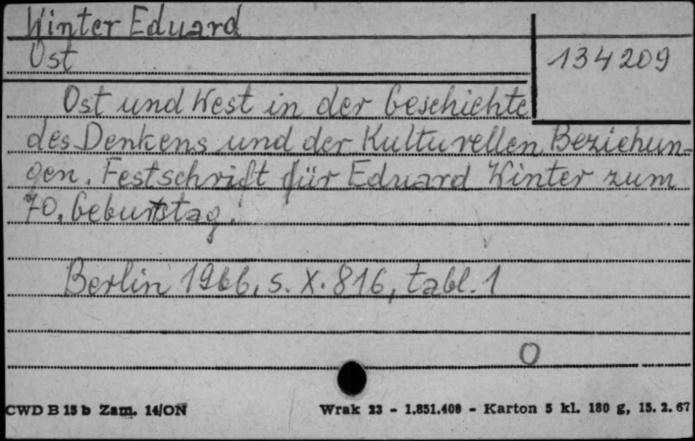 Winter Eduard
Ost
134209
Ost und West in der Geschichte
des Denkens und der Kulturellen Beziehun-
gen. Festschrift für Eduard Winter zum
70. Geburtstag.
Berlin 1966, s. X. 816, tabl. 1
O
CWD B 15 b Zam. 14/ON
Wrak 23 - 1.851.408 - Karton 5 kl. 180 g, 15. 2. 67